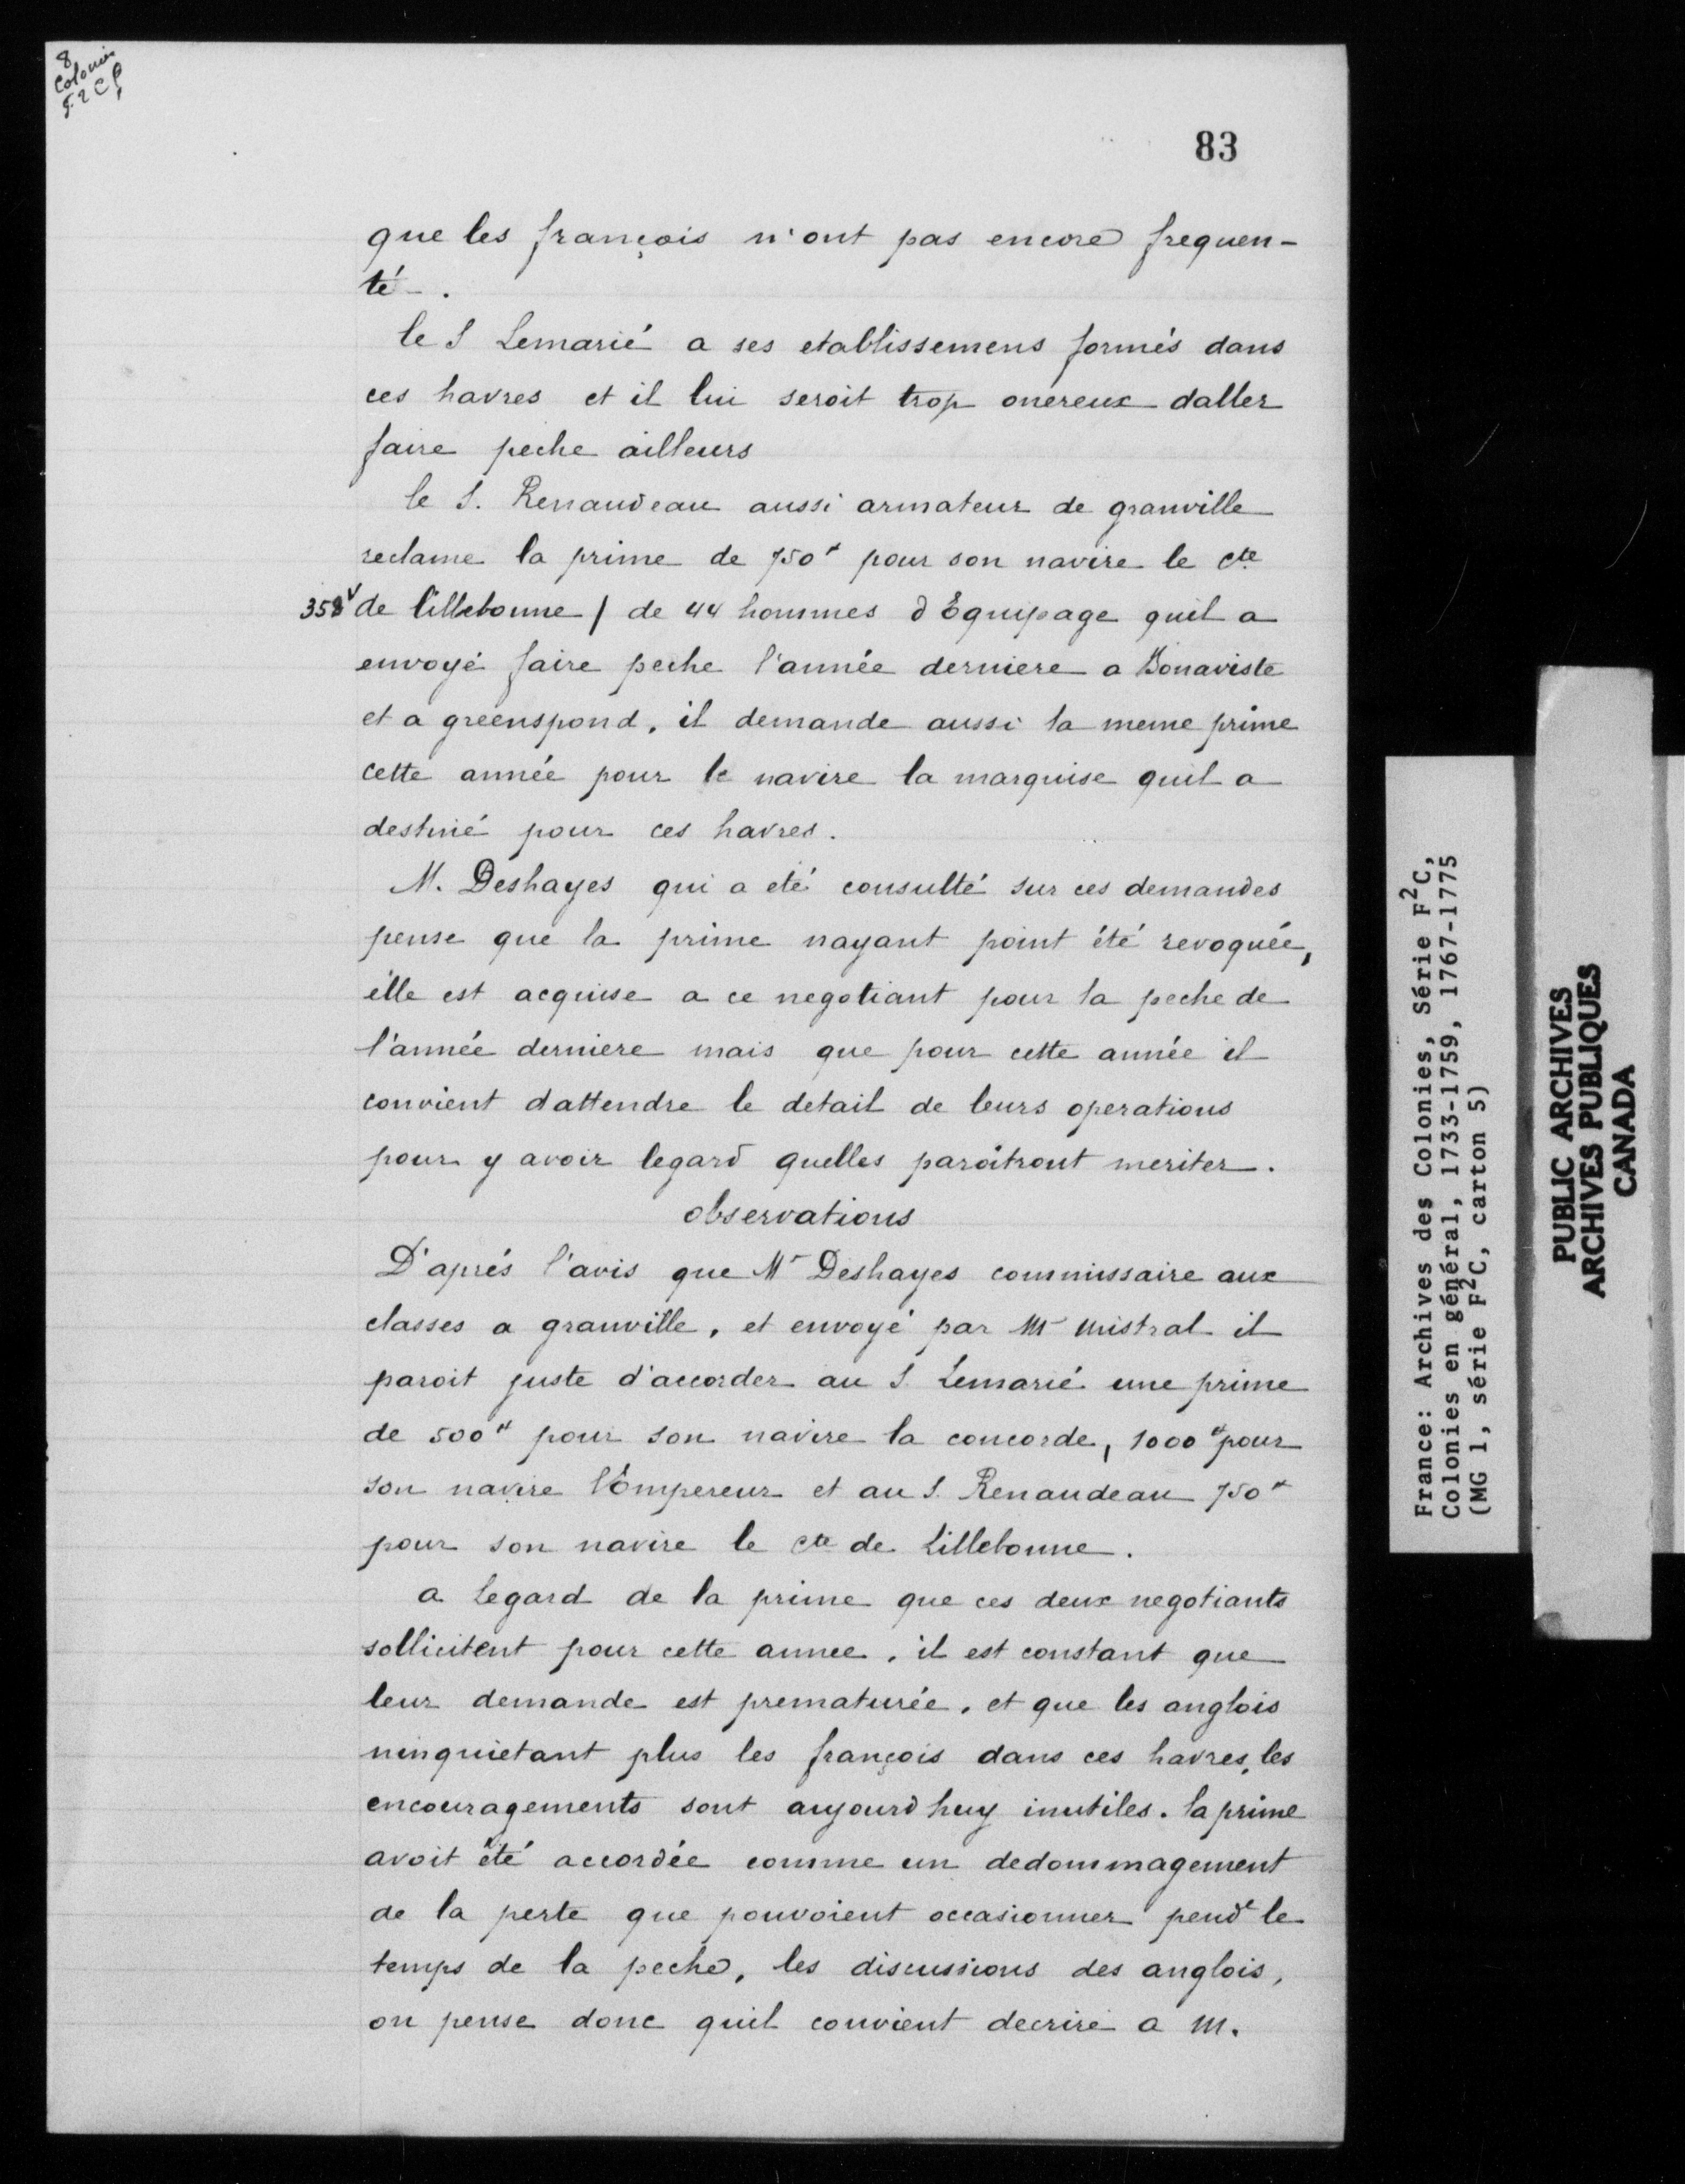 8
colonies
F. 2 C
83
que les françois n'ont pas encore frequen-
té.
le S Lemarié a ses etablissemens formés dans
ces havres et il lui seroit trop onereux daller
faire peche ailleurs
le S. Renaudeau aussi armateur de granville
reclame la prime de 750# pour son navire le cte
358v de lillebonne / de 44 hommes d Equipage quil a
envoyé faire peche l'année derniere a Bonaviste
et a greenspond, il demande aussi la meme prime
cette année pour le navire la marquise quil a
destiné pour ces havres.
M. Deshayes qui a eté consulté sur ces demandes
pense que la prime nayant point été revoquée,
elle est acquise a ce negotiant pour la peche de
l'année derniere mais que pour cette année il
convient dattendre le detail de leurs operations
pour y avoir legard quelles paroîtront meriter.
observations
D'aprés l'avis que Mr Deshayes commissaire aux
classes a granville, et envoyé par Mr mistral il
paroit juste d'accorder au S Lemarié une prime
de 500# pour son navire la concorde, 1000# pour
son navire l'Empereur et au S. Renaudeau 750#
pour son navire le cte de Lillebonne.
a legard de la prime que ces deux negotiants
sollicitent pour cette annee, il est constant que
leur demande est prematurée, et que les anglois
ninquietant plus les françois dans ces havres, les
encouragements sont aujourd huy inutiles. la prime
avoit été accordée comme un dedommagement
de la perte que pouvoient occasionner pendt le
temps de la peche, les discussions des anglois,
on pense donc quil convient decrire a M.
France: Archives des Colonies, Série F2C,
Colonies en général, 1733-1759, 1767-1775
(MG 1, série F2C, carton 5)
PUBLIC ARCHIVES
ARCHIVES PUBLIQUES
CANADA